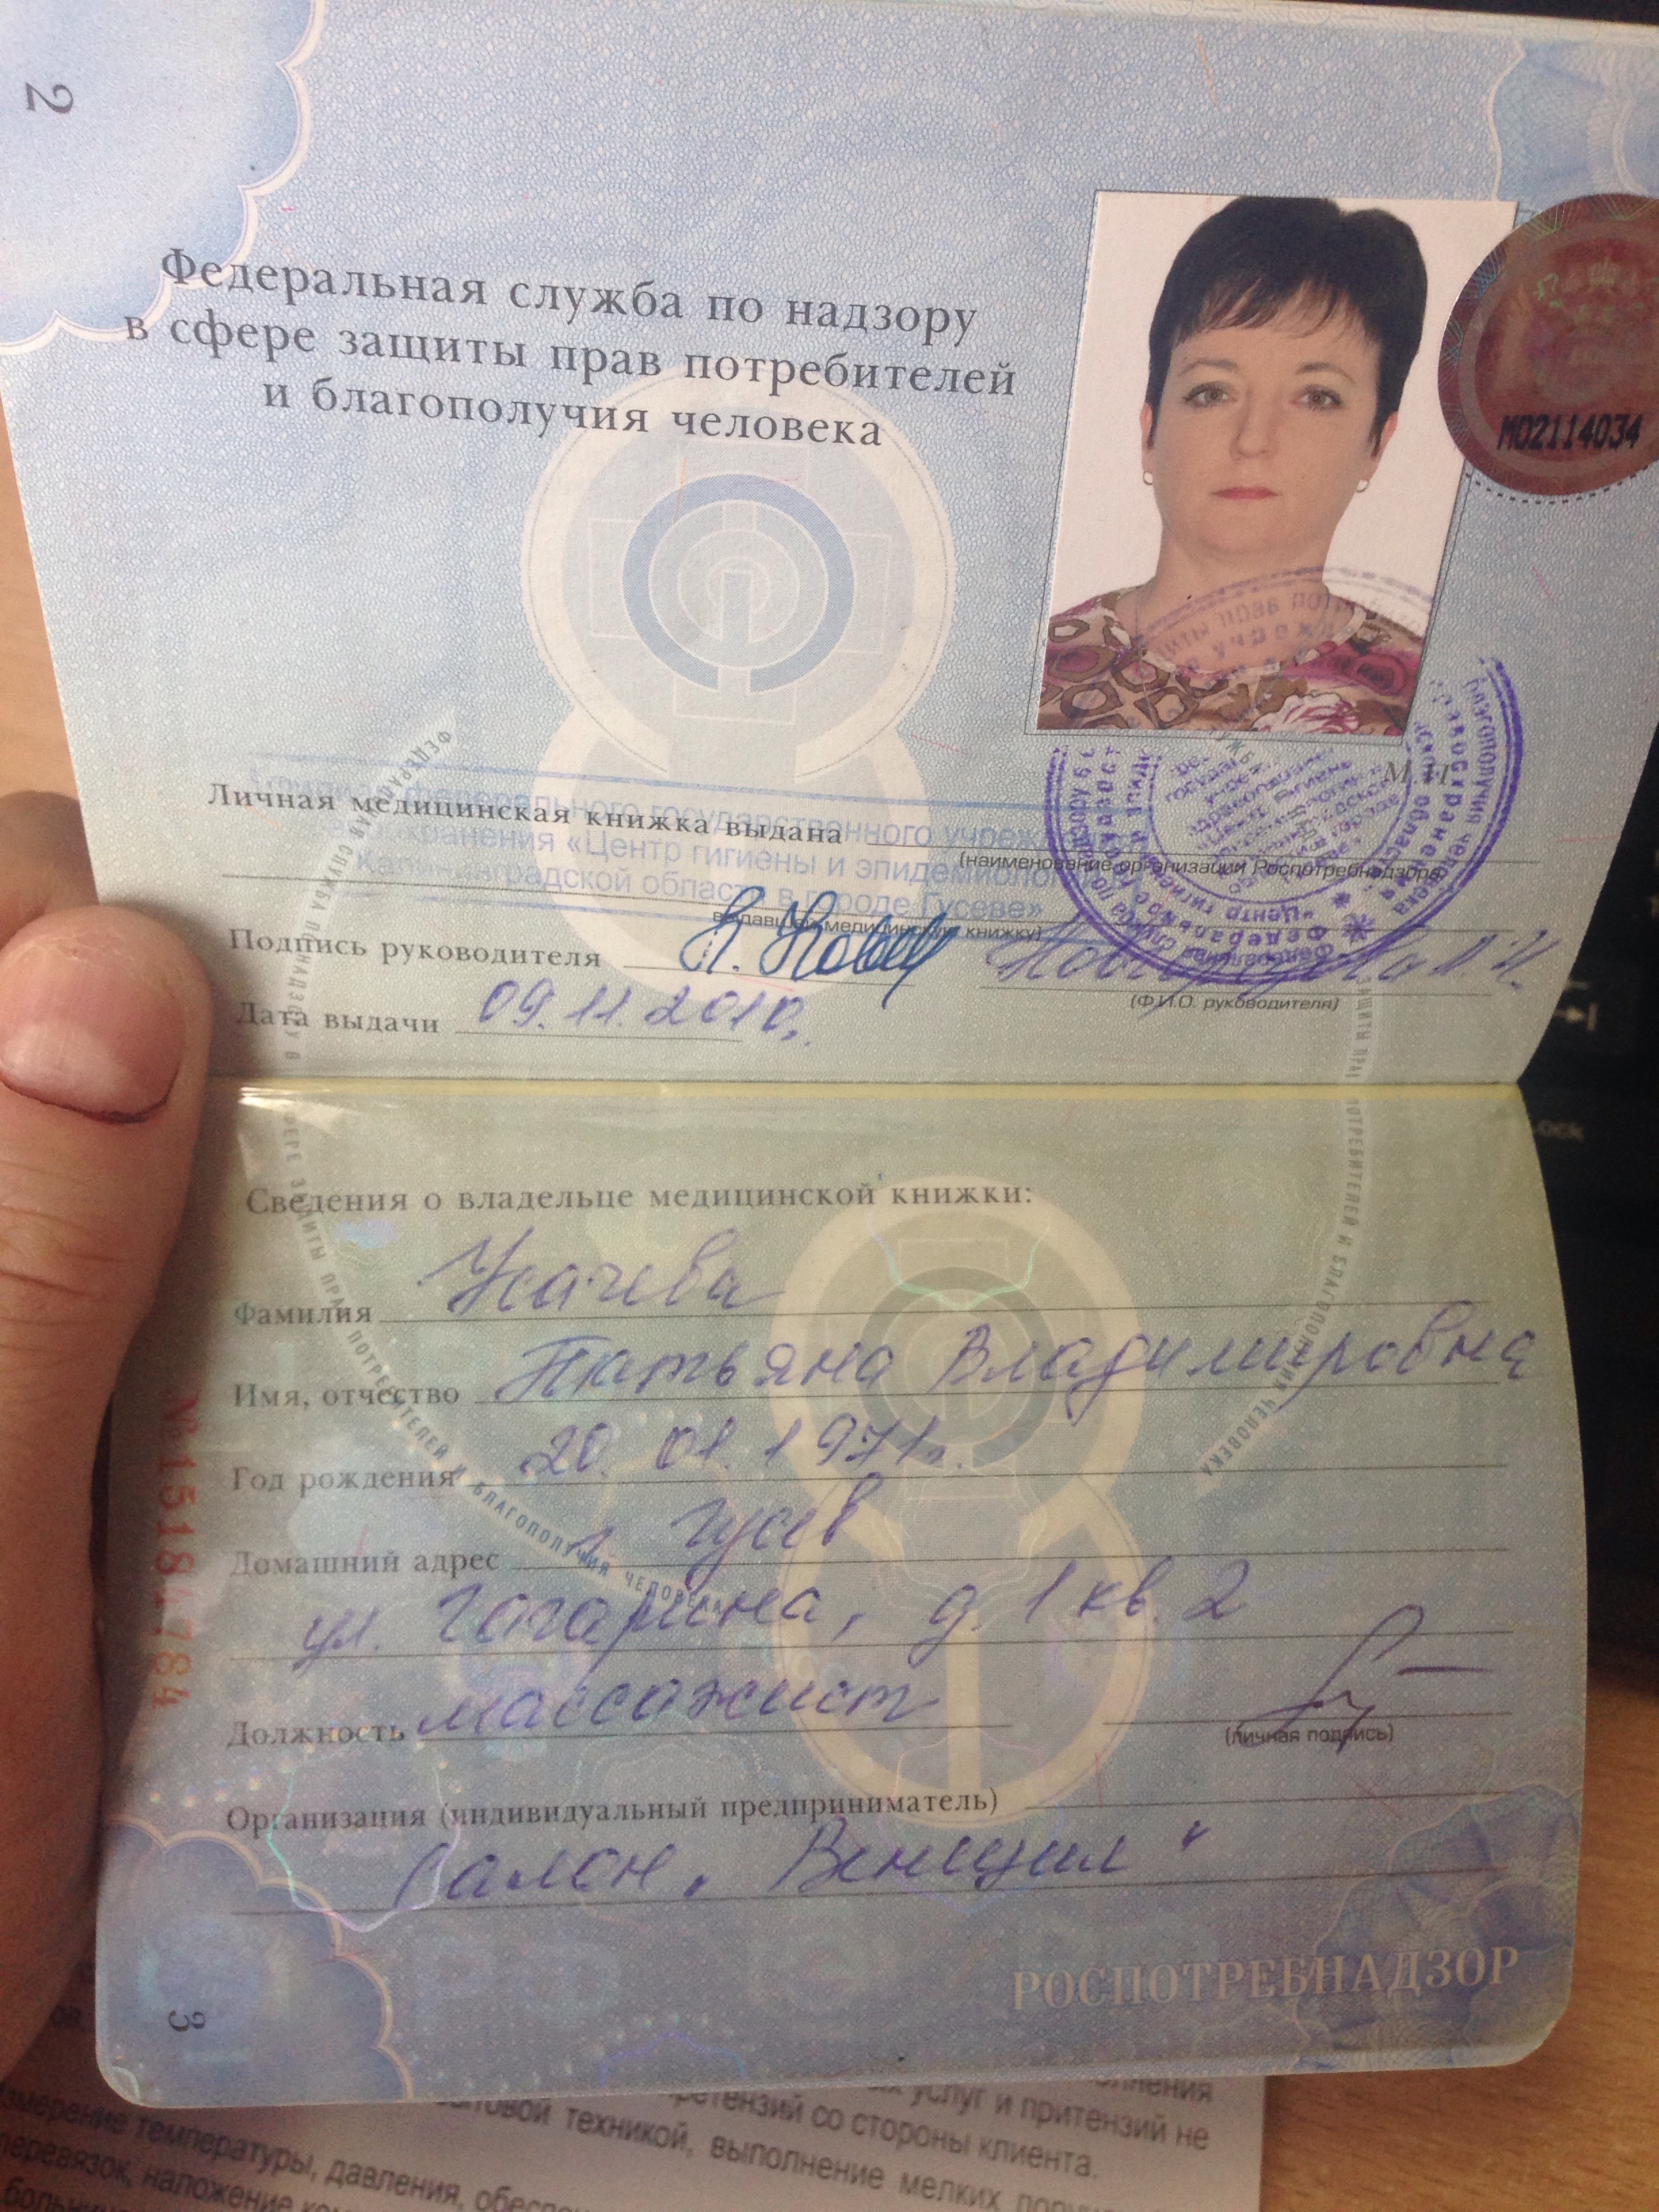 2
Федеральная служба по надзору
в сфере защиты прав потребителей
и благополучия человека
М02114034
М.П.
федерального государственного
Личная медицинская книжка выдана
(наименование организации Роспотребнадзора,
здравоохранения «Центр гигиены и эпидемиологии
Калининградской области в городе Гусеве»
выдавшей медицинскую книжку)
Подпись руководителя
(Ф.И.О. руководителя)
Дата выдачи 09.11.2010г.
Сведения о владельце медицинской книжки:
Фамилия Усачева
Имя, отчество Татьяна Владимировна
Год рождения 20. 01. 1971г.
Домашний адрес г. Гусев
ул. Гагарина, д. 1 кв. 2
Должность массажист
(личная подпись)
Организация (индивидуальный предприниматель)
Салон „Венеция"
РОСПОТРЕБНАДЗОР
3
услуг и притензий не
претензий со стороны клиента.
техникой, выполнение мелких
измерение температуры, давления,
перевязок, наложение